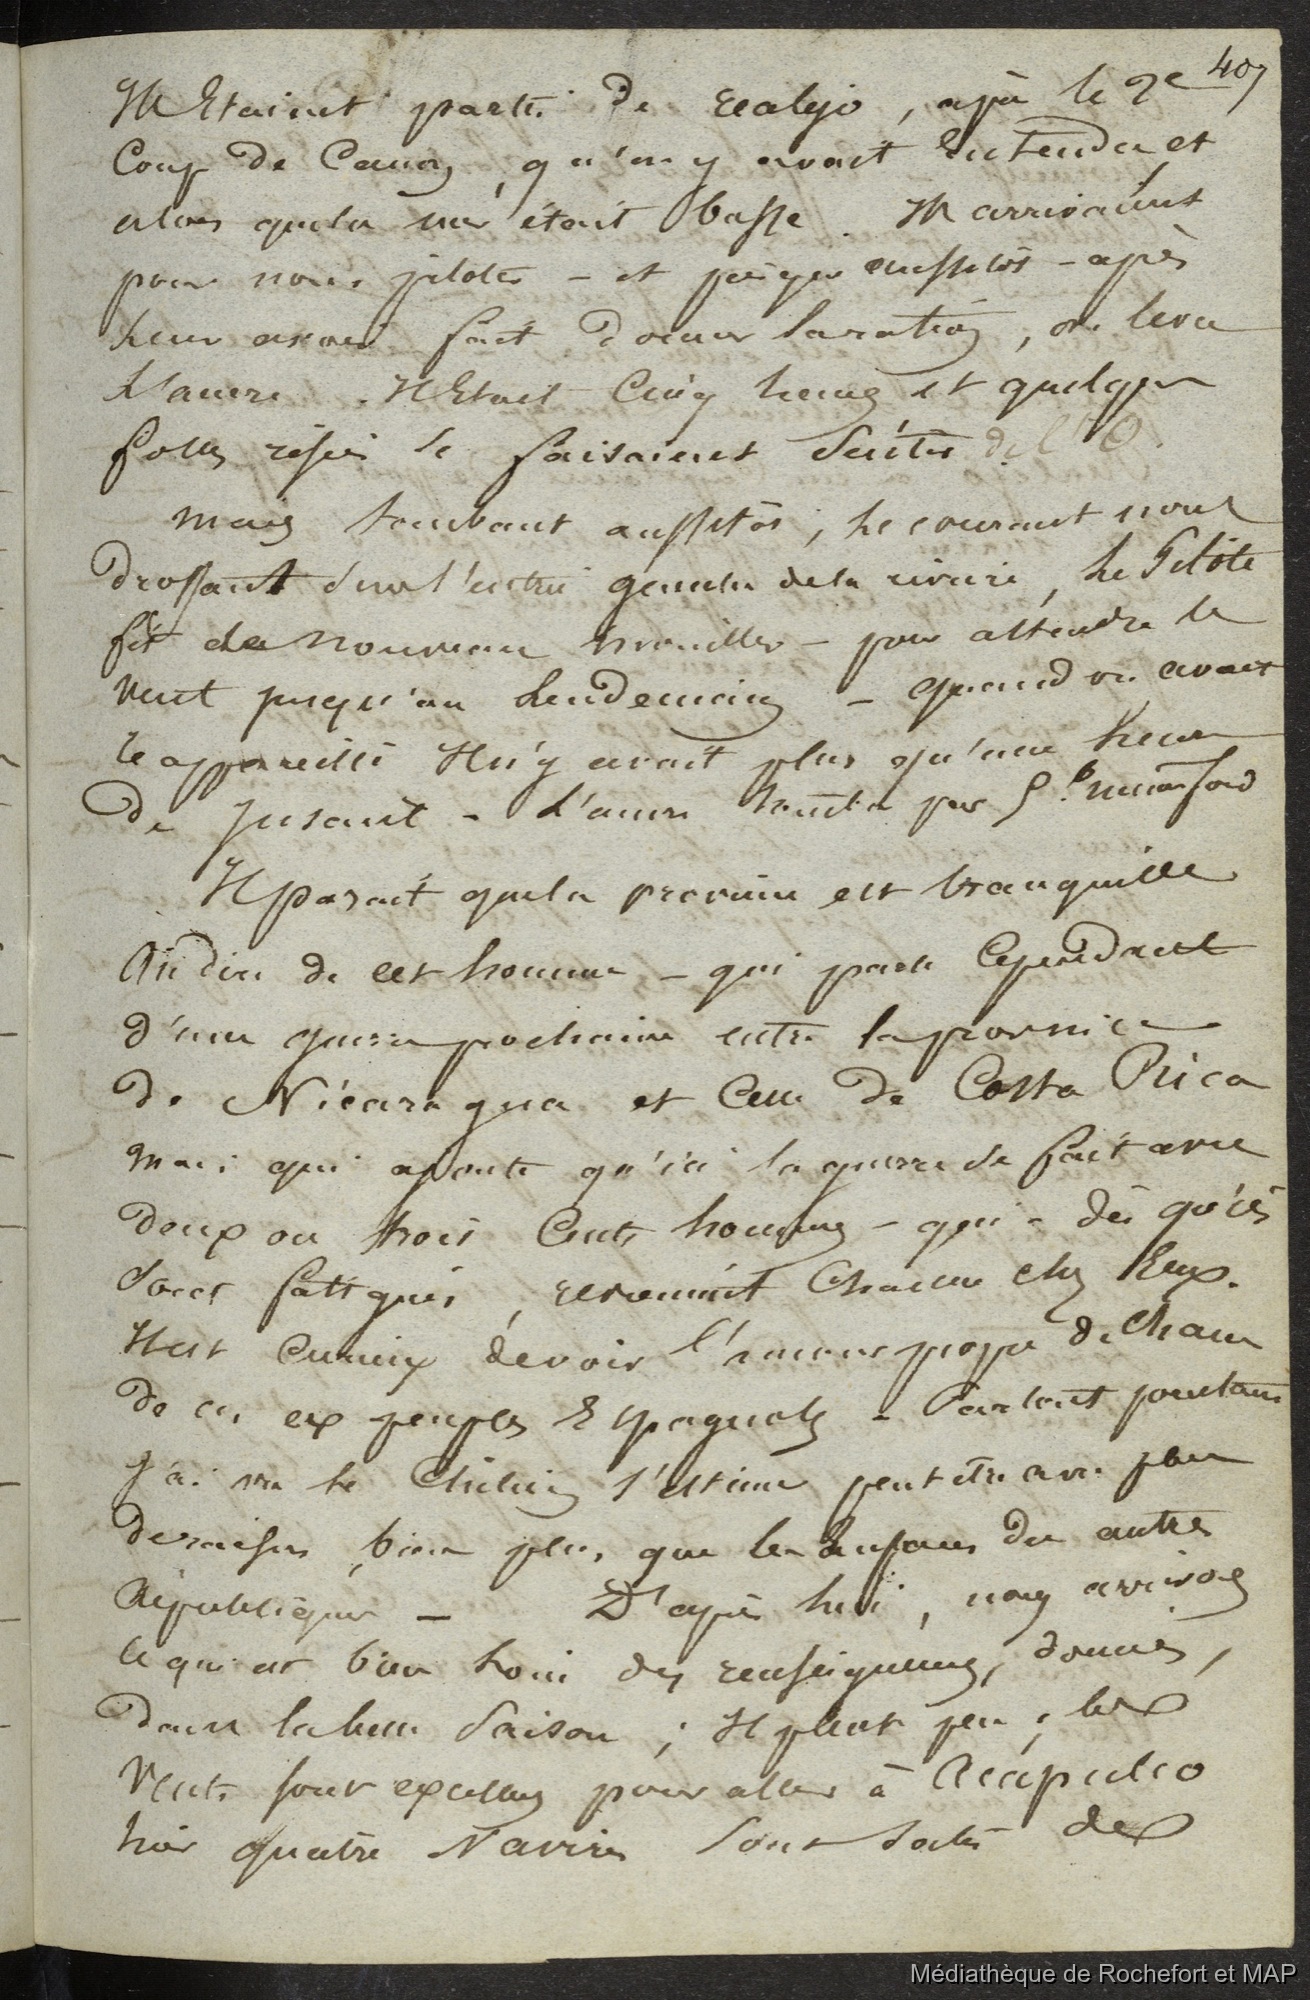 407
Ils Etaient parti de realejo, après le 2e
Coup de Canon, qu'on y avait Entendu, et
alors que la mer était basse. Ils arrivaient
pour nous piloter - et puisque aussitôt - après
leur avoir fait donner la ration, on leva
L'ancre. Il Etait Cinq heures et quelques
folles risées se faisaient Sentir de l'O.
mais tombant aussitôt, le courant nous
Drossant Sur l'entrée gauche de la rivière, le Pilote
fit de nouveau mouiller - pour attendre le
vent jusqu'au Lendemain - quand on avait
appareillé Il n'y avait plus qu'une heure
De Jusant - L'ancre tomba par 5 b. même fond
Il parait que la province est tranquille
Au dire de cet homme - qui parle Cependant
d'une guerre prochaine entre la province
de Nicaragua et Celle de Costa Rica
mais qui ajoute qu'ici la guerre se fait avec
Deux ou trois Cents hommes - qui - dès qu'ils
Sont fatigués, reviennent Chacun chez Eux.
Il est Curieux de voir l'amour propre de Chacun
de ces ex peuples Espagnols - Partout pourtant
J'ai vu le Chilien s'estimer peut être avec plus
de raison, bien plus que les Enfans des autres
Républiques - D'après lui, nous arrivons
ce qui est bien loin des renseignemens, donnés,
Dans la belle Saison; Il pleut peu, les
Vents sont excellens pour aller à Acapulco
hier quatre Navires Sont Sortis des
Médiathèque de Rochefort et MAP